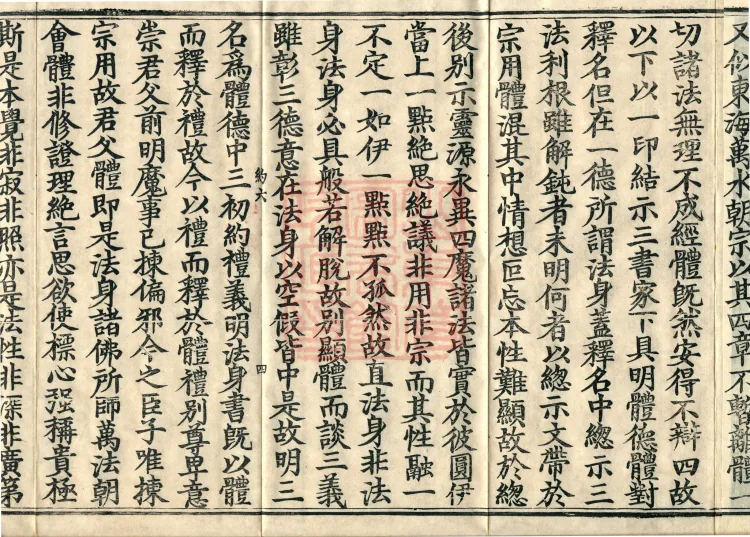 又似東海萬水朝宗以其四章不暫離體一
切諸法無理不成經體旣然安得不辯四故
以下以一印結示三書家下具明體德體對
釋名但在一德所謂法身蓋釋名中總示三
法利根雖解鈍者未明何者以總示文帶於
宗用體混其中情想叵忘本性難顯故於總
後別示靈源永異四魔諸法皆實於彼圓伊
當上一點絶思絶議非用非宗而其性融一
不定一如伊一點點不孤然故直法身非法
身法身必具般若解脫故別顯體而談三義
雖彰三德意在法身以空假皆中是故明三
約六
四
名爲體德中三初約禮義明法身書旣以體
而釋於禮故今以禮而釋於體禮別尊卑意
崇君父前明魔事已揀偏邪今之臣子唯揀
宗用故君父體即是法身諸佛所師萬法朝
會體非修證理絶言思欲使標心强稱貴極
斯是本覺非寂非照亦是法性非深非廣第